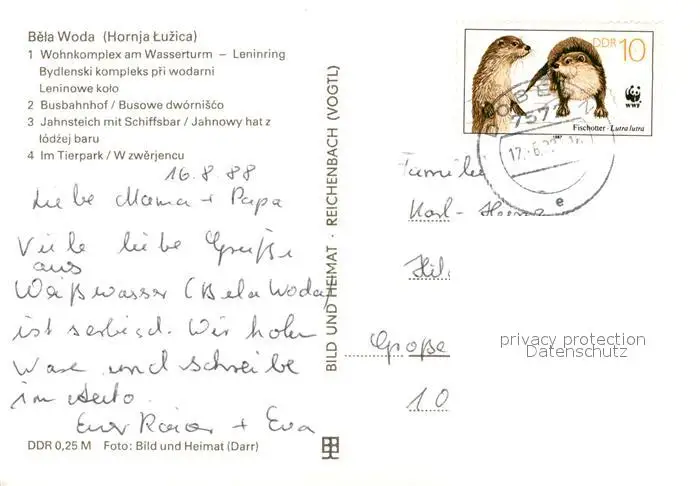 Běla Woda (Hornja Łužica)
1 Wohnkomplex am Wasserturm – Leninring
Bydlenski kompleks při wodarni
Leninowe koło
2 Busbahnhof / Busowe dwórnišćo
3 Jahnsteich mit Schiffsbar / Jahnowy hat z
łódźej baru
4 Im Tierpark / W zwěrjencu
16.8.88
Liebe Mama + Papa
Viele liebe Grüße
aus
Weißwasser (Bela Woda)
ist serbisch. Wir holen
Ware und schreibe
im Auto.
Euer Rainer + Eva
DDR 0,25 M Foto: Bild und Heimat (Darr)
BILD UND HEIMAT · REICHENBACH (VOGTL)
DDR 10
WWF
Fischotter · Lutra lutra
7572
e
Familie
Karl-Heinz
Große
10
privacy protection
Datenschutz